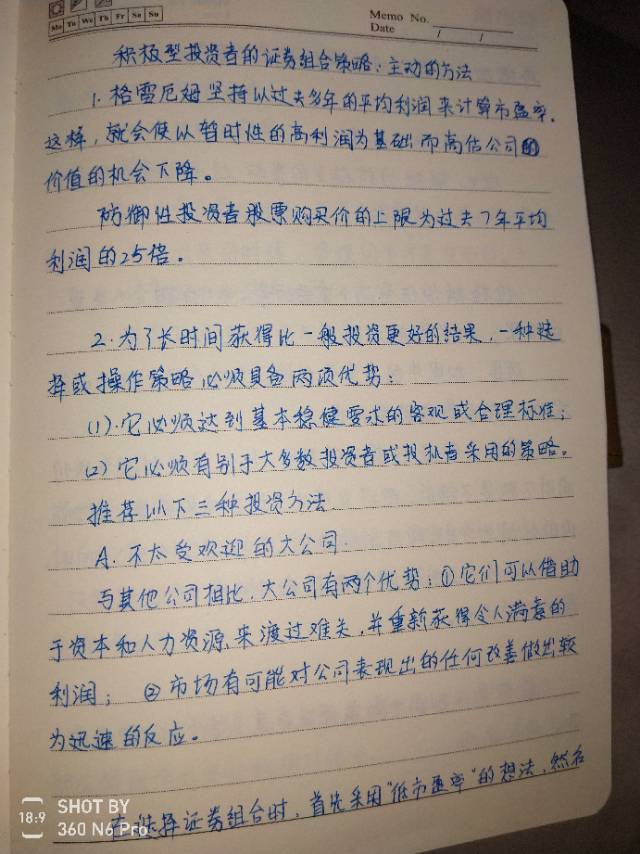 Memo No.
Mo Tu We Th Fr Sa Su
Date / /
积极型投资者的证券组合策略：主动的方法
1. 格雷厄姆坚持以过去多年的平均利润来计算市盈率.
这样，就会使以暂时性的高利润为基础而高估公司的
价值的机会下降。
防御性投资者股票购买价的上限为过去7年平均
利润的25倍。
2.为了长时间获得比一般投资更好的结果，一种选
择或操作策略必须具备两项优势：
(1).它必须达到基本稳健要求的客观或合理标准；
(2) 它必须有别于大多数投资者或投机者采用的策略。
推荐以下三种投资方法
A. 不太受欢迎的大公司.
与其他公司相比，大公司有两个优势：①它们可以借助
于资本和人力资源，来渡过难关，并重新获得令人满意的
利润； ②市场有可能对公司表现出的任何改善做出较
为迅速的反应。
在选择证券组合时，首先采用“低市盈率”的想法，然后
SHOT BY
18:9
360 N6 Pro